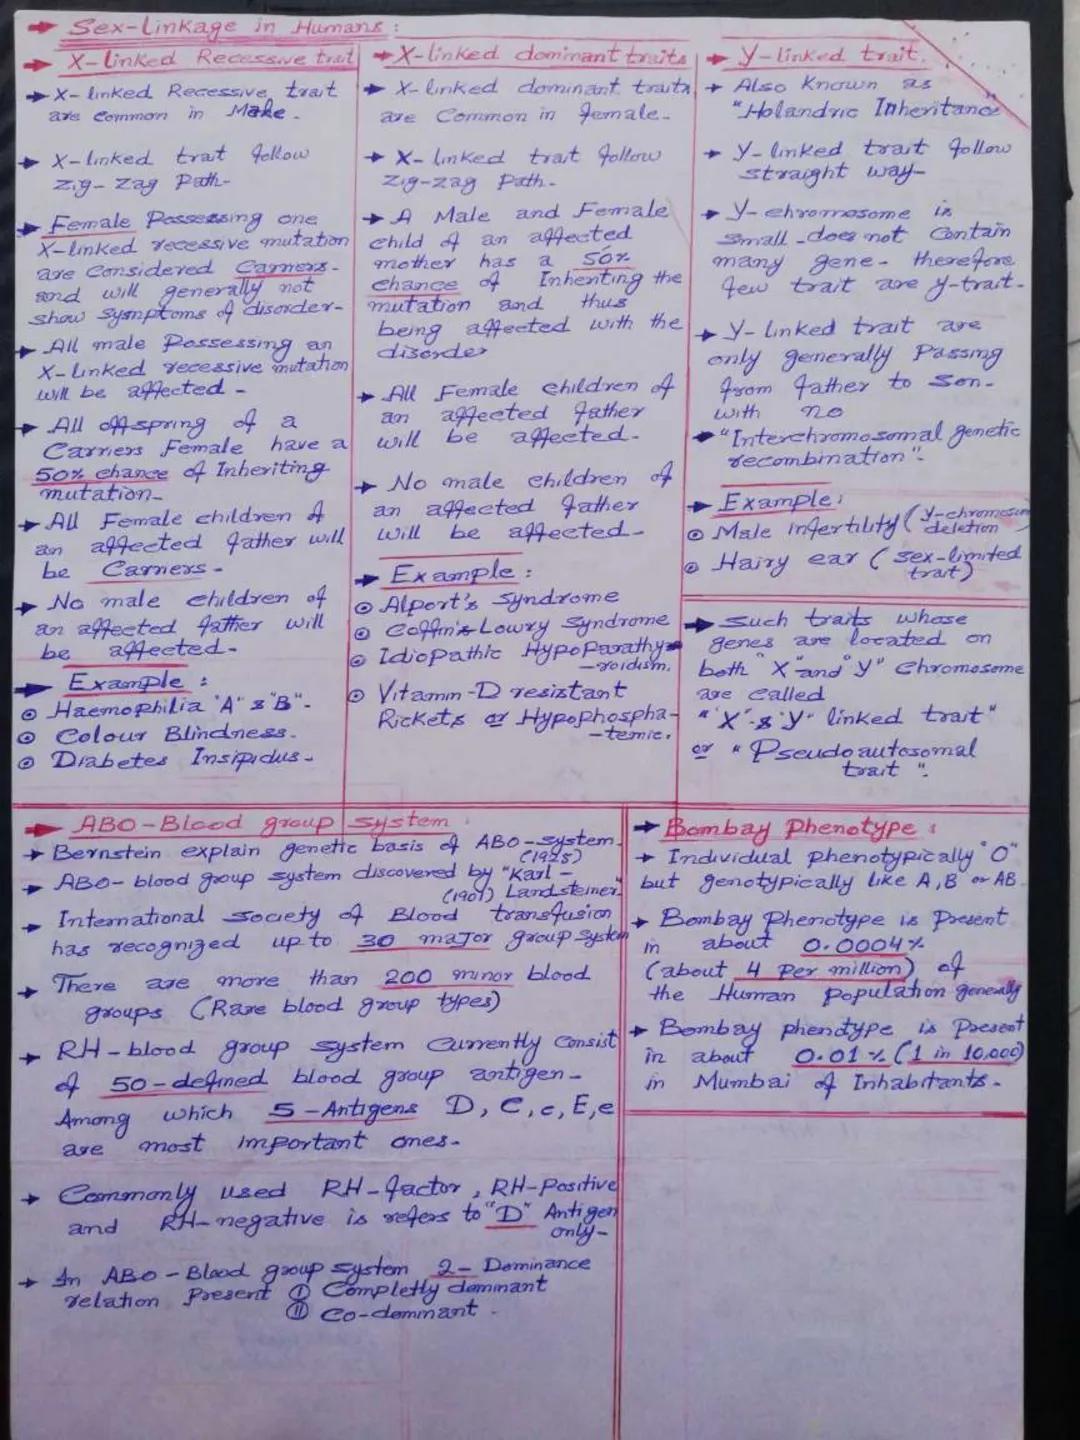 → Sex-linkage in Humans :
→ X-linked Recessive trait
→ X-linked Recessive trait
are common in Male.
→ X-linked trait follow
zig-zag Path-
→ Female Possessing one
X-linked recessive mutation
are considered Carriers-
and will generally not
show symptoms of disorder-
→ All male Possessing an
X-linked recessive mutation
will be affected -
→ All offspring of a
Carriers Female have a
50% chance of Inheriting
mutation-
→ All Female children of
an affected father will
be Carriers -
→ No male children of
an affected father will
be affected-
→ Example :
⊙ Haemophilia "A" & "B"-
⊙ Colour Blindness.
⊙ Diabetes Insipidus -
→ X-linked dominant traits
→ X-linked dominant traits
are Common in female-
→ X-linked trait follow
zig-zag Path-
→ A Male and Female
child of an affected
mother has a 50%
chance of Inheriting the
mutation and thus
being affected with the
disorder
→ All Female children of
an affected father
will be affected-
→ No male children of
an affected father
will be affected-
→ Example :
⊙ Alport's syndrome
⊙ Coffin's Lowry syndrome
⊙ Idiopathic Hypoparathy-
-roidism.
⊙ Vitamin-D resistant
Rickets or Hypophospha-
-temic.
→ Y-linked trait.
→ Also Known as
"Holandric Inheritance"
→ Y-linked trait follow
straight way-
→ Y-chromosome is
small-does not Contain
many gene- therefore
few trait are Y-trait-
→ Y-linked trait are
only generally Passing
from father to son-
with no
→ "Interchromosomal genetic
recombination".
→ Example:
⊙ Male infertility (Y-chromosom
deletion
⊙ Hairy ear (sex-limited
trait)
→ Such traits whose
genes are located on
both "X" and "Y" chromosome
are called
"X"-&"Y" linked trait"
or "Pseudoautosomal
trait".
→ ABO-Blood group system :
→ Bernstein explain genetic basis of ABO-system.
(1925)
→ ABO-blood group system discovered by "Karl -
(1901) Landsteiner"
→ International society of Blood transfusion
has recognized up to 30 major group system
→ There are more than 200 minor blood
groups (Rare blood group types)
→ RH-blood group system currently consist
of 50-defined blood group antigen-
Among which 5-Antigens D, C, c, E, e
are most important ones-
→ Commonly used RH-factor, RH-Positive
and RH-negative is refers to "D" Antigen
only-
→ In ABO-Blood group system 2- Dominance
relation Present Ⓘ Completly dominant
Ⓘⓘ Co-dominant -
→ Bombay Phenotype :
→ Individual phenotypically "O"
but genotypically like A, B or AB.
→ Bombay Phenotype is Present
in about 0.0004%
(about 4 Per million) of
the Human population generally
→ Bombay phenotype is Present
in about 0.01% (1 in 10,000)
in Mumbai of Inhabitants-